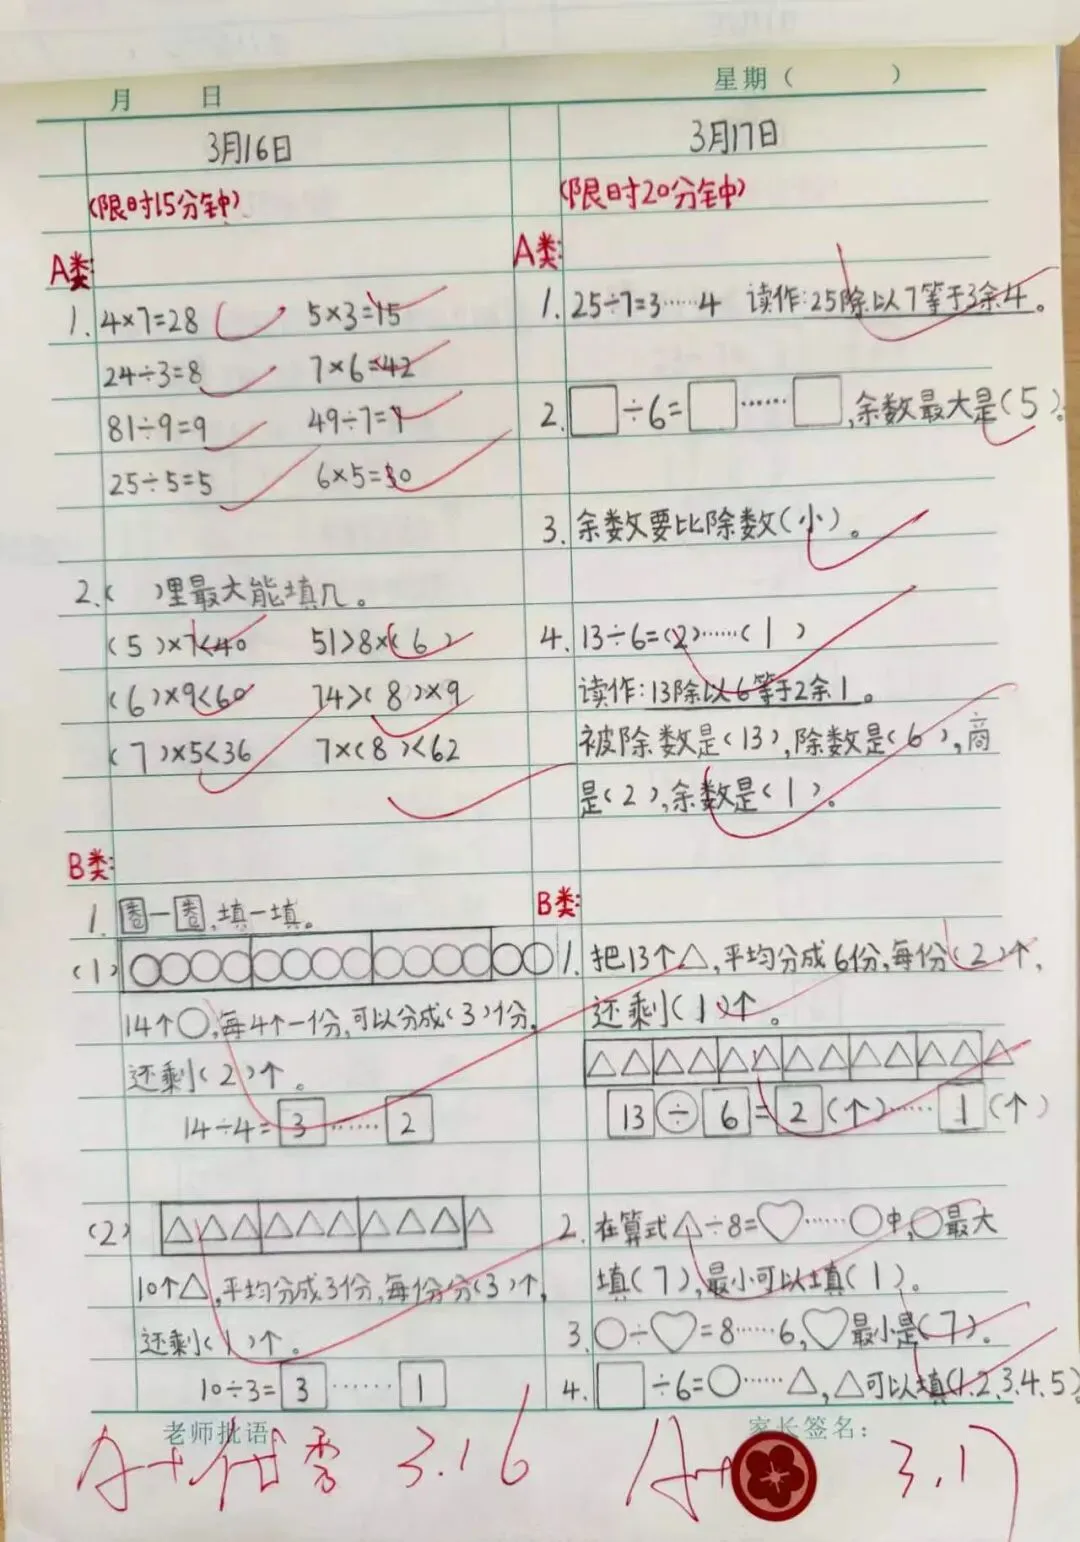 月 日
星期（ ）
3月16日
(限时15分钟)
A类:
1. 4×7=28 5×3=15
24÷3=8 7×6=42
81÷9=9 49÷7=7
25÷5=5 6×5=30
2.( )里最大能填几。
(5)×7<40 51>8×(6)
(6)×9<60 74>(8)×9
(7)×5<36 7×(8)<62
B类:
1. 圈一圈,填一填。
(1)
14个○,每4个一份,可以分成(3)份,
还剩(2)个。
14÷4=3……2
(2)
10个△,平均分成3份,每份分(3)个,
还剩(1)个。
10÷3=3……1
3月17日
(限时20分钟)
A类:
1. 25÷7=3……4 读作:25除以7等于3余4。
2. □÷6=□……□,余数最大是(5)。
3. 余数要比除数(小)。
4. 13÷6=(2)……(1)
读作:13除以6等于2余1。
被除数是(13),除数是(6),商
是(2),余数是(1)。
B类:
1. 把13个△,平均分成6份,每份(2)个,
还剩(1)个。
13÷6=2(个)……1(个)
2. 在算式△÷8=♡……○中,○最大
填(7),最小可以填(1)。
3. ○÷♡=8……6,♡最小是(7)。
4. □÷6=○……△,△可以填(1.2.3.4.5)
老师批语:
家长签名:
A+优秀 3.16
A+ 3.17